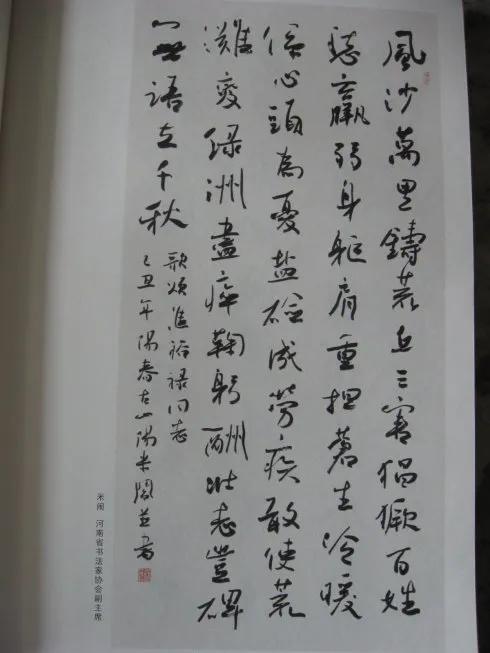 風沙萬里鑄荒丘三害猖獗百姓
愁羸弱身軀肩重担蒼生冷暖
係心頭為憂盐碱成勞疾敢使荒
灘変绿洲盡瘁鞠躬酬壯志豐碑
無語立千秋
歌颂焦裕禄同志
己丑年陽春古山陽米閙并書
米闹 河南省书法家协会副主席